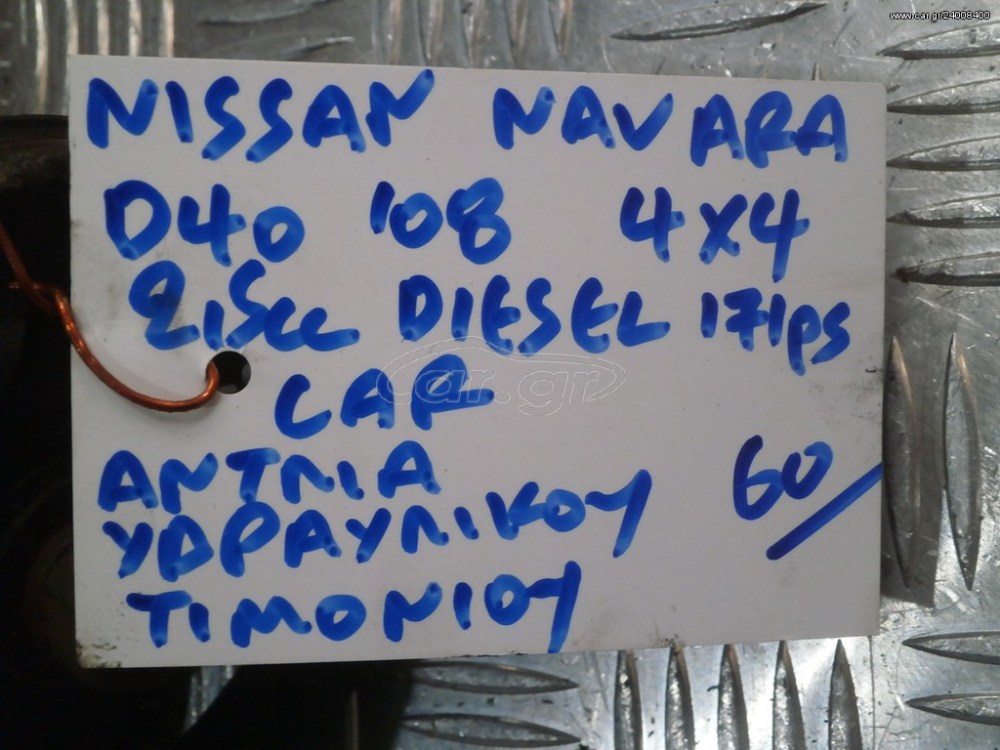 www.car.gr/24008400
NISSAN NAVARA
D40 '08 4X4
2,5cc DIESEL 171ps
CAR
car.gr
ΑΝΤΛΙΑ 60/
ΥΔΡΑΥΛΙΚΟΥ
ΤΙΜΟΝΙΟΥ